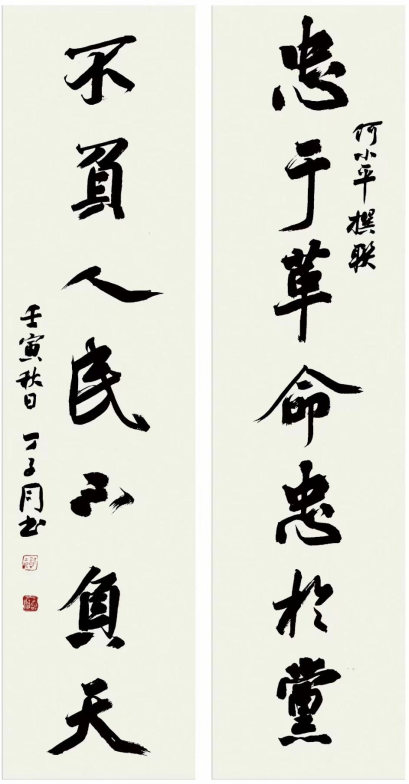 忠于革命忠於黨
何小平撰联
不負人民不負天
壬寅秋日 丁子同书